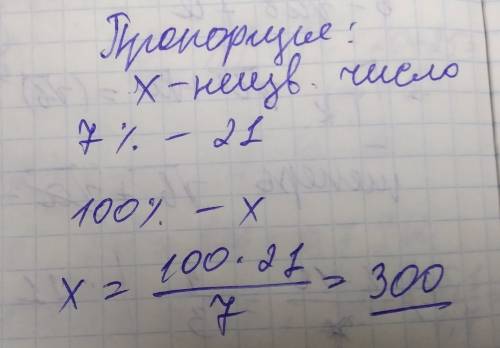 Пропорция:
x - неизв. число
7% - 21
100% - x
x = 100·21/7 = 300